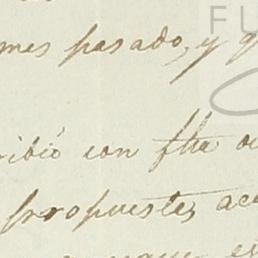 FU
mes pasado, y q
ribió con fha o
propuestas ac